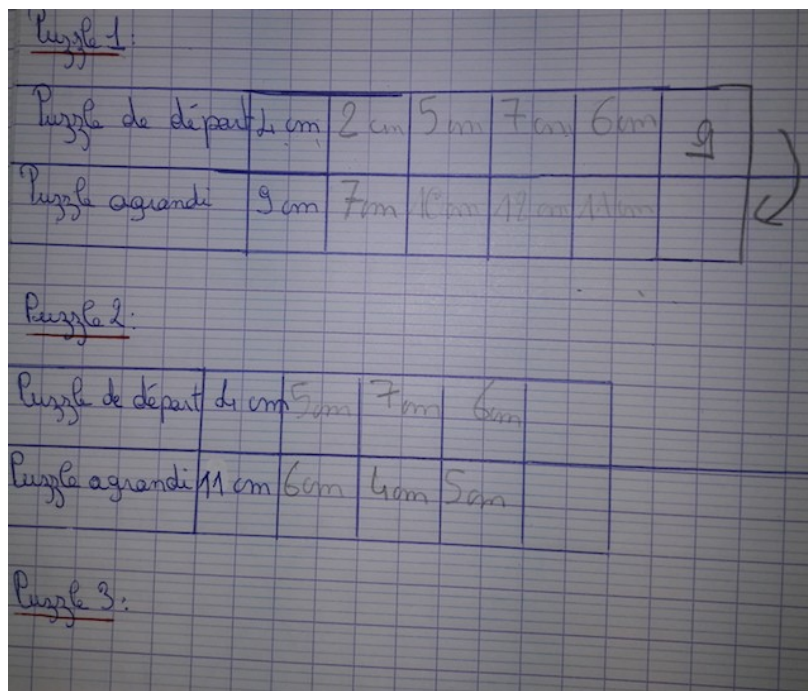 Puzzle 1:
Puzzle de départ 4 cm 2 cm 5 cm 7 cm 6 cm 9
Puzzle agrandi 9 cm 7 cm 10 cm 12 cm 11 cm
Puzzle 2:
Puzzle de départ 4 cm 5 cm 7 cm 6 cm
Puzzle agrandi 11 cm 6 cm 4 cm 5 cm
Puzzle 3: